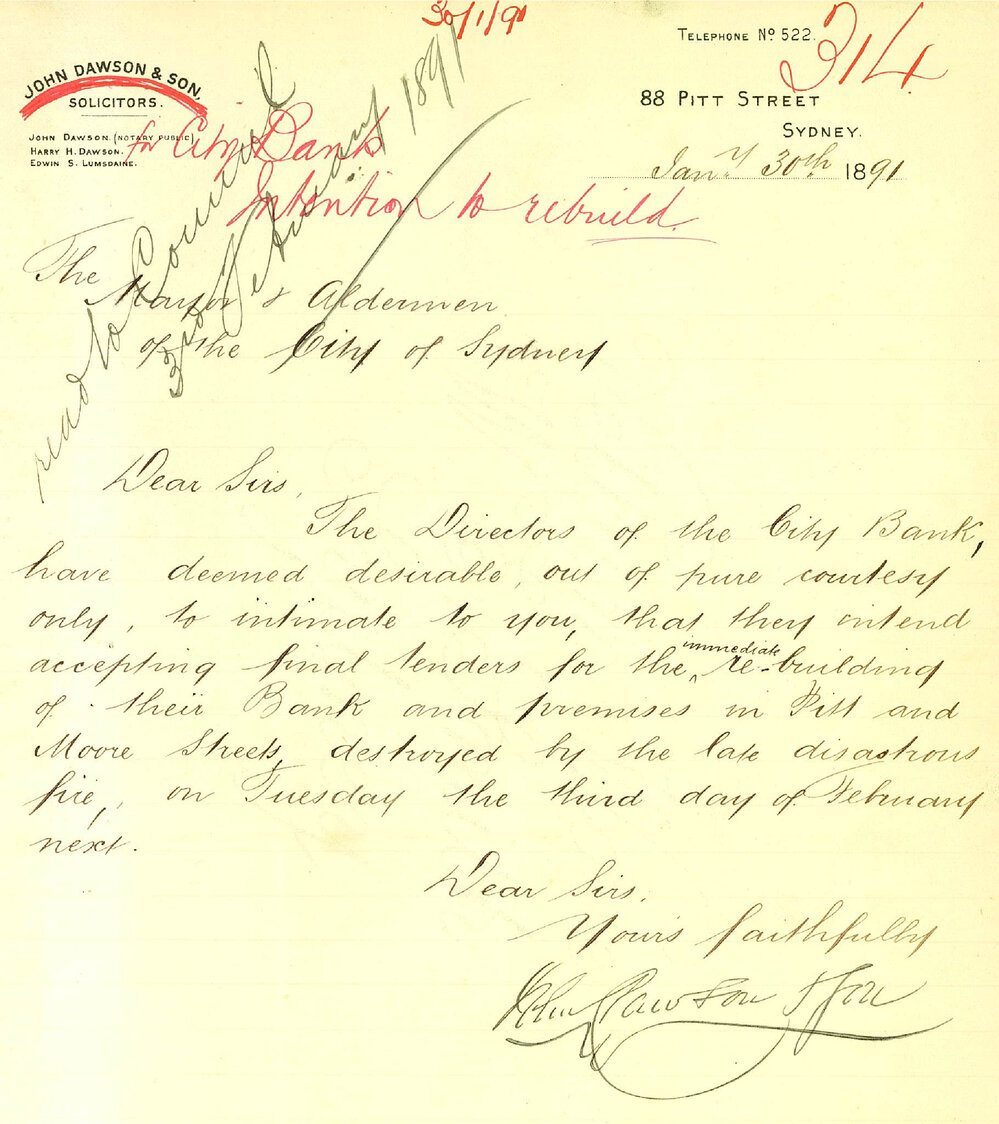 30/1/91
TELEPHONE No 522.
314
JOHN DAWSON & SON,
SOLICITORS.
JOHN DAWSON. (NOTARY PUBLIC)
HARRY H. DAWSON.
EDWIN S. LUMSDAINE.
88 PITT STREET
SYDNEY.
Jany 30th 1891
for City Bank
Intention to rebuild.
read to Council
3rd February 1891
The
Mayor & Aldermen
of the City of Sydney
Dear Sirs,
The Directors of the City Bank,
have deemed desirable, out of pure courtesy
only, to intimate to you, that they intend
accepting final tenders for the immediate re-building
of their Bank and premises in Pitt and
Moore Streets, destroyed by the late disastrous
fire, on Tuesday the third day of February
next.
Dear Sirs.
Yours faithfully
John Dawson & Son